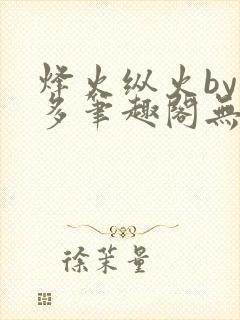 烽火纵火by
多笔趣阁无
徐茉量